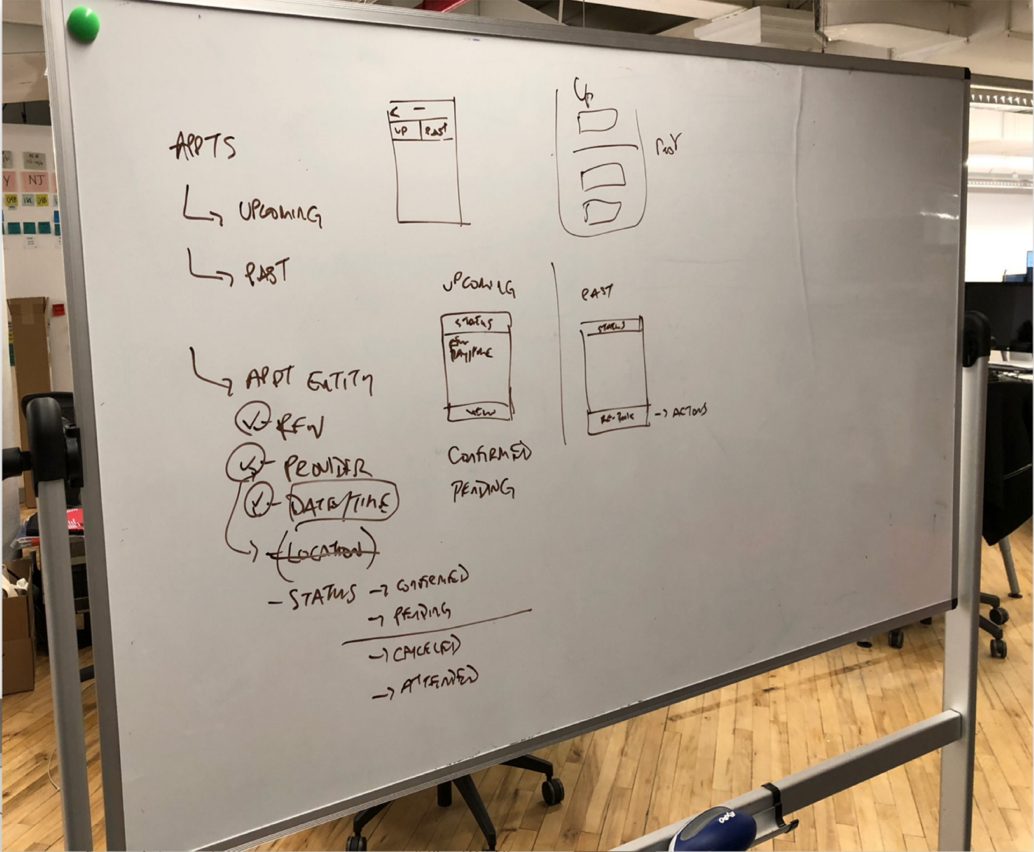 APPTS
UPCOMING
PAST
APPT ENTITY
RFV
- PROVIDER
- DATE/TIME
(LOCATION)
- STATUS → CONFIRMED
→ PENDING
→ CANCELED
→ ATTENDED
< -
UP PAST
UP
PAST
UPCOMING
STATUS
RFV
DAY/TIME
VIEW
CONFIRMED
PENDING
PAST
STATUS
RE-BOOK → ACTIONS
NJ
Y